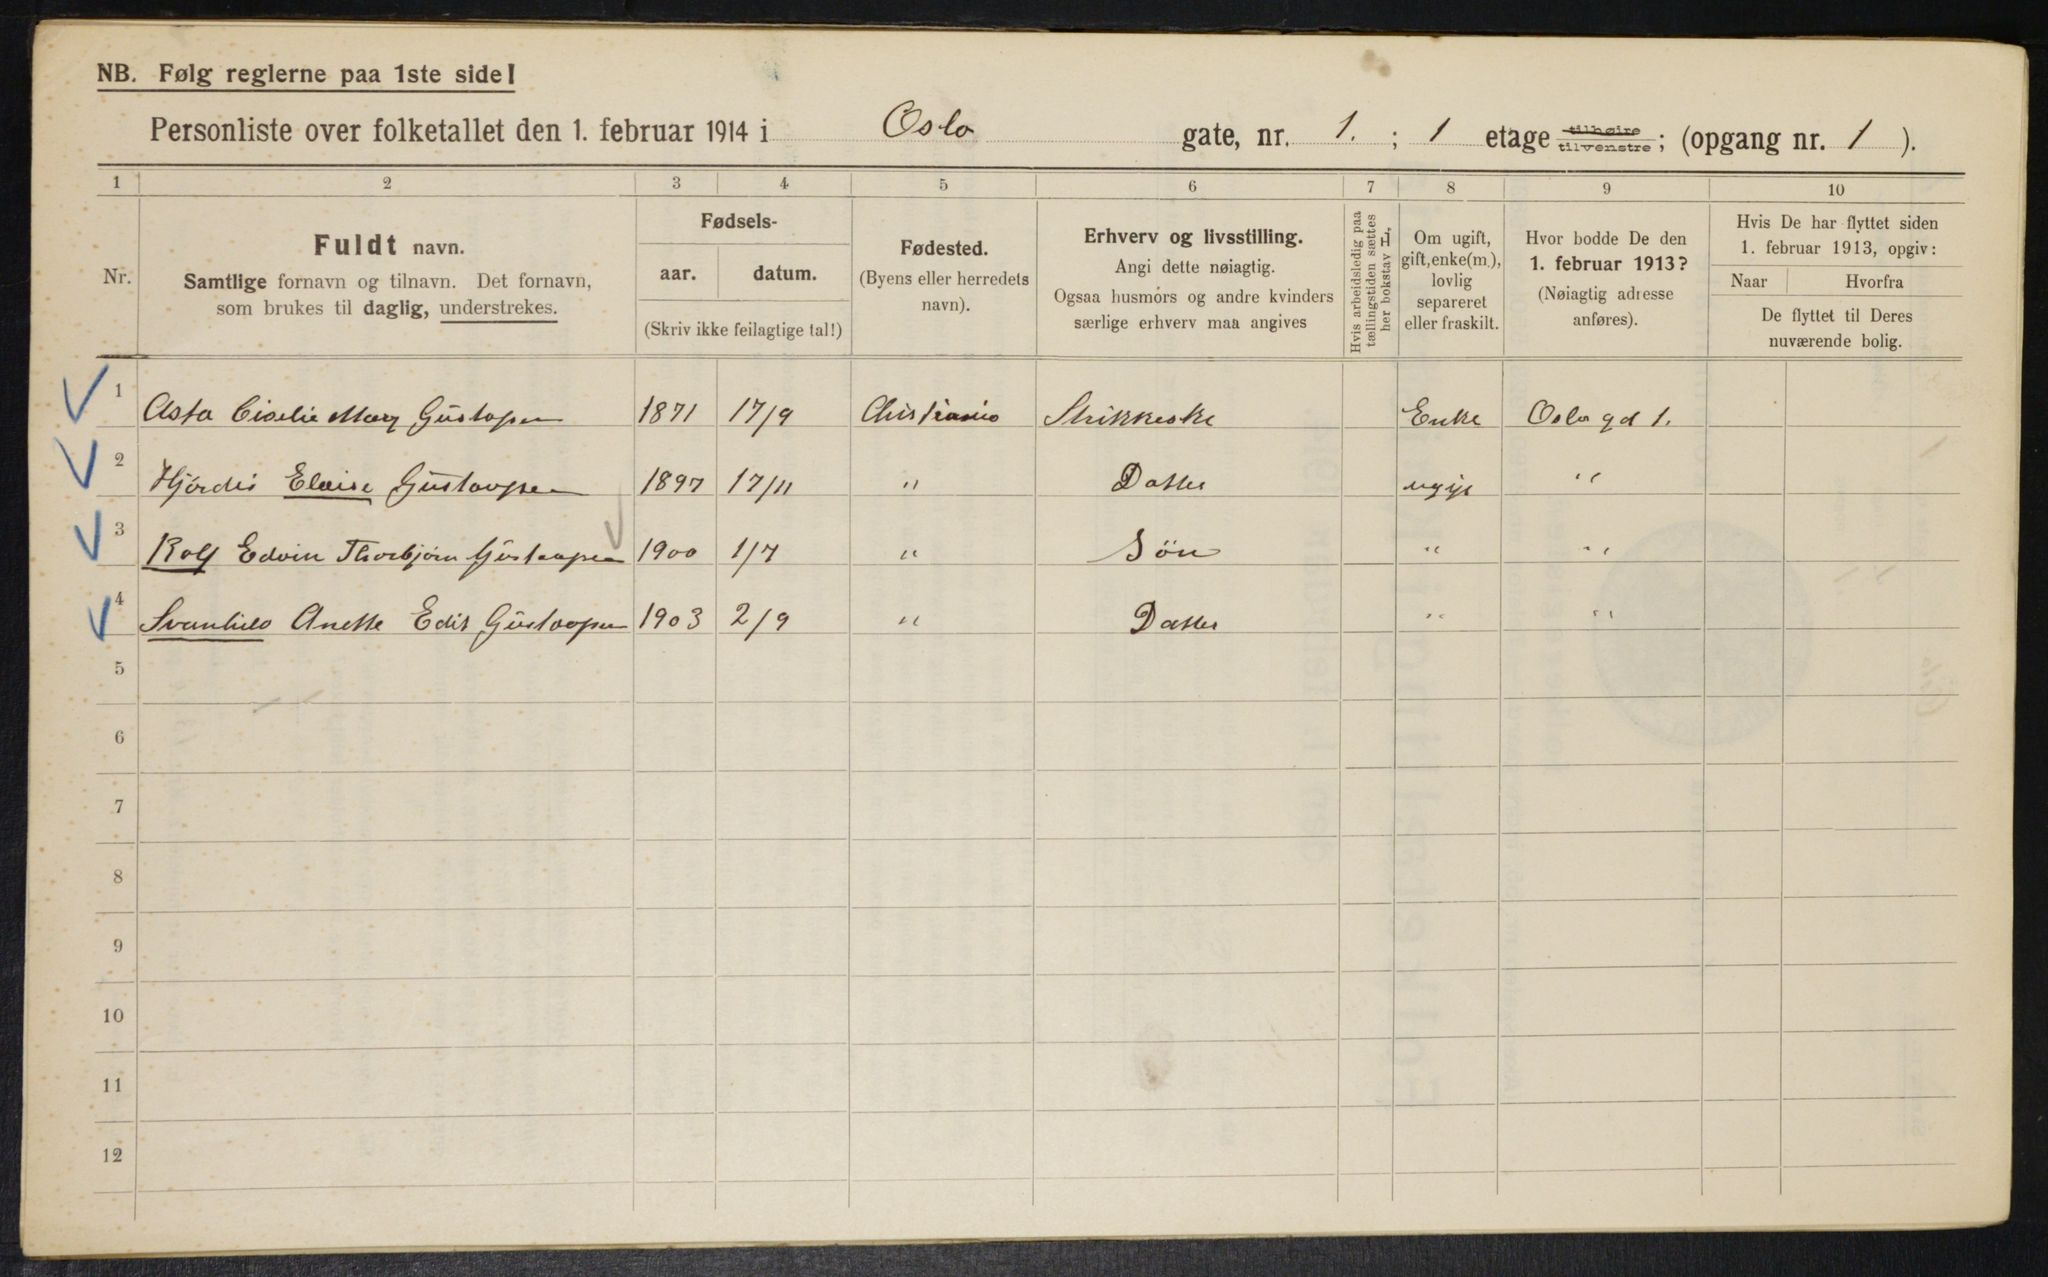 NB. Følg reglerne paa 1ste side!
Personliste over folketallet den 1. februar 1914 i Oslo gate, nr. 1. ; 1 etage tilhøire tilvenstre; (opgang nr. 1 ).
1 2 3 4 5 6 7 8 9 10
Nr.
Fuldt navn.
Samtlige fornavn og tilnavn. Det fornavn,
som brukes til daglig, understrekes.
Fødsels-
aar. datum.
(Skriv ikke feilagtige tal!)
Fødested.
(Byens eller herredets
navn).
Erhverv og livsstilling.
Angi dette nøiagtig.
Ogsaa husmors og andre kvinders
særlige erhverv maa angives
Hvis arbeidsledig paa
tællingstiden sættes
her bokstav L.
Om ugift,
gift, enke(m.),
lovlig
separeret
eller fraskilt.
Hvor bodde De den
1. februar 1913?
(Nøiagtig adresse
anføres).
Hvis De har flyttet siden
1. februar 1913, opgiv:
Naar Hvorfra
De flyttet til Deres
nuværende bolig.
1 Asta Gustavsen 1871 17/9 Christiania Enke Oslo gd 1.
2 Hjördis Eloise Gustavsen 1897 17/11 " Datter ugift "
3 Rolf Edvin Thorbjørn Gustavsen 1900 1/7 " Sön " "
4 Svanhild Anette Edit Gustavsen 1903 2/9 " Datter " "
5
6
7
8
9
10
11
12